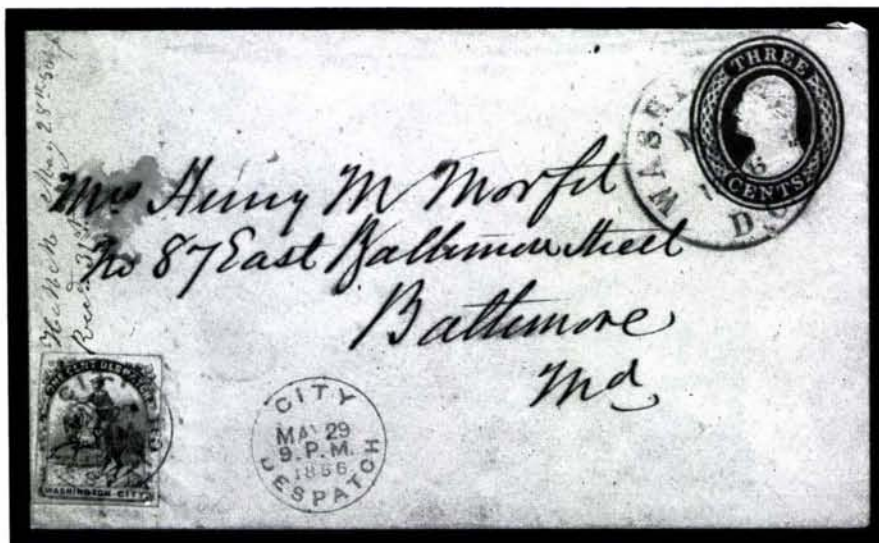 May 28th
Recd 31st
THREE
CENTS
WASH
D.C.
Mrs Henry M Morfit
No 87 East Baltimore Street
Baltimore
Md
ONE CENT DESPATCH
WASHINGTON CITY
CITY
MAY 29
9. P.M.
1856
DESPATCH